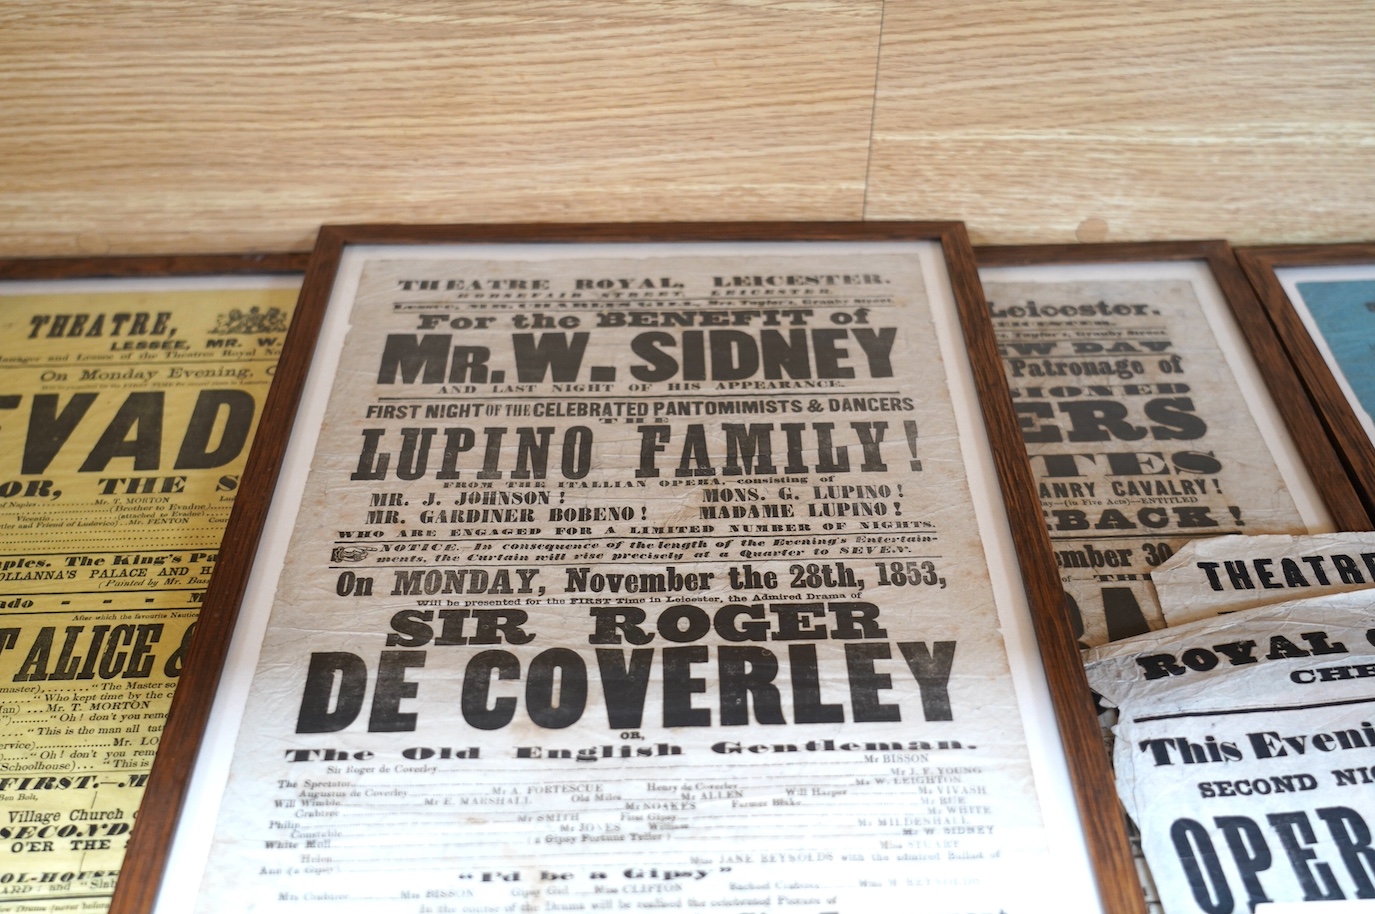 THEATRE ROYAL, LEICESTER.
HORSEFAIR STREET, LEICESTER.
For the BENEFIT of
MR. W. SIDNEY
AND LAST NIGHT OF HIS APPEARANCE.
FIRST NIGHT OF THE CELEBRATED PANTOMIMISTS & DANCERS
THE
LUPINO FAMILY!
FROM THE ITALLIAN OPERA, consisting of
MR. J. JOHNSON! MONS. G. LUPINO!
MR. GARDINER BOBENO! MADAME LUPINO!
WHO ARE ENGAGED FOR A LIMITED NUMBER OF NIGHTS.
NOTICE.—In consequence of the length of the Evening's Entertain-
ments, the Curtain will rise precisely at a Quarter to SEVEN.
On MONDAY, November the 28th, 1853,
Will be presented for the FIRST Time in Leicester, the Admired Drama of
SIR ROGER
DE COVERLEY
OR,
The Old English Gentleman.
Sir Roger de Coverley Mr BISSON
The Spectator Mr A. FORTESCUE Henry de Coverley Mr J. F. YOUNG
Augustus de Coverley Mr ALLEN Will Harper Mr W. LEIGHTON
Will Wimble Mr E. MARSHALL Old Miles Mr NOAKES Farmer Blake Mr VIVASH
Crabtree Mr SMITH First Gipsy Mr RUE
Philip Mr JONES William Mr WHITE
Constable Mr MILDENHALL
White Moll (a Gipsy Fortune Teller) Mr W SIDNEY
Helen Miss STUART
Ann (a Gipsy) Miss JANE REYNOLDS with the admired Ballad of
"I'd be a Gipsy"
Mrs BISSON Gipsy Girl Miss CLIFTON
In the course of the Drama will be realised the celebrated Picture of
THEATRE,
LESSEE, MR. W.
Manager and Lessee of the Theatres Royal
On Monday Evening,
EVAD
OR, THE S
Mr. T. MORTON
(Brother to Evadne)
Vicentio (attached to Evadne)
Mr. FENTON
The King's Pa
OLLANNA'S PALACE AND H
(Painted by Mr.
After which the favourite
T ALICE &
master) "The Master
"Who kept time by the
Mr. T. MORTON
"Oh! don't you
"This is the man all
Mr. LO
"Oh! don't you
Schoolhouse) "This is
FIRST.—
Ben Bolt,
Village Church
SECOND,
O'ER THE
Leicester.
W DAY
Patronage of
IONED
ERS
TES
ANRY CAVALRY!
(in Five Acts)—ENTITLED
BACK!
ember 30
THEATRE
ROYAL
CHE
This Eveni
SECOND NIG
OPER